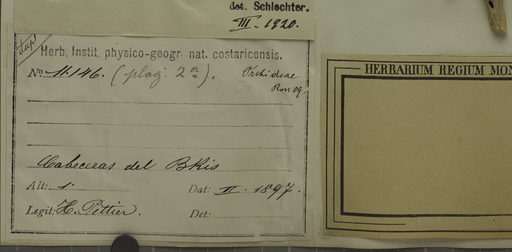 det. Schlechter.
III. 1920.
dupl.
Herb. Instit. physico-geogr. nat. costaricensis.
No 11.146. (plag. 2a). Orchideae
Cabeceras del BRis
Alt: 1 Dat: II. 1897.
Legit: H. Pittier. Det:
HERBARIUM REGIUM MON